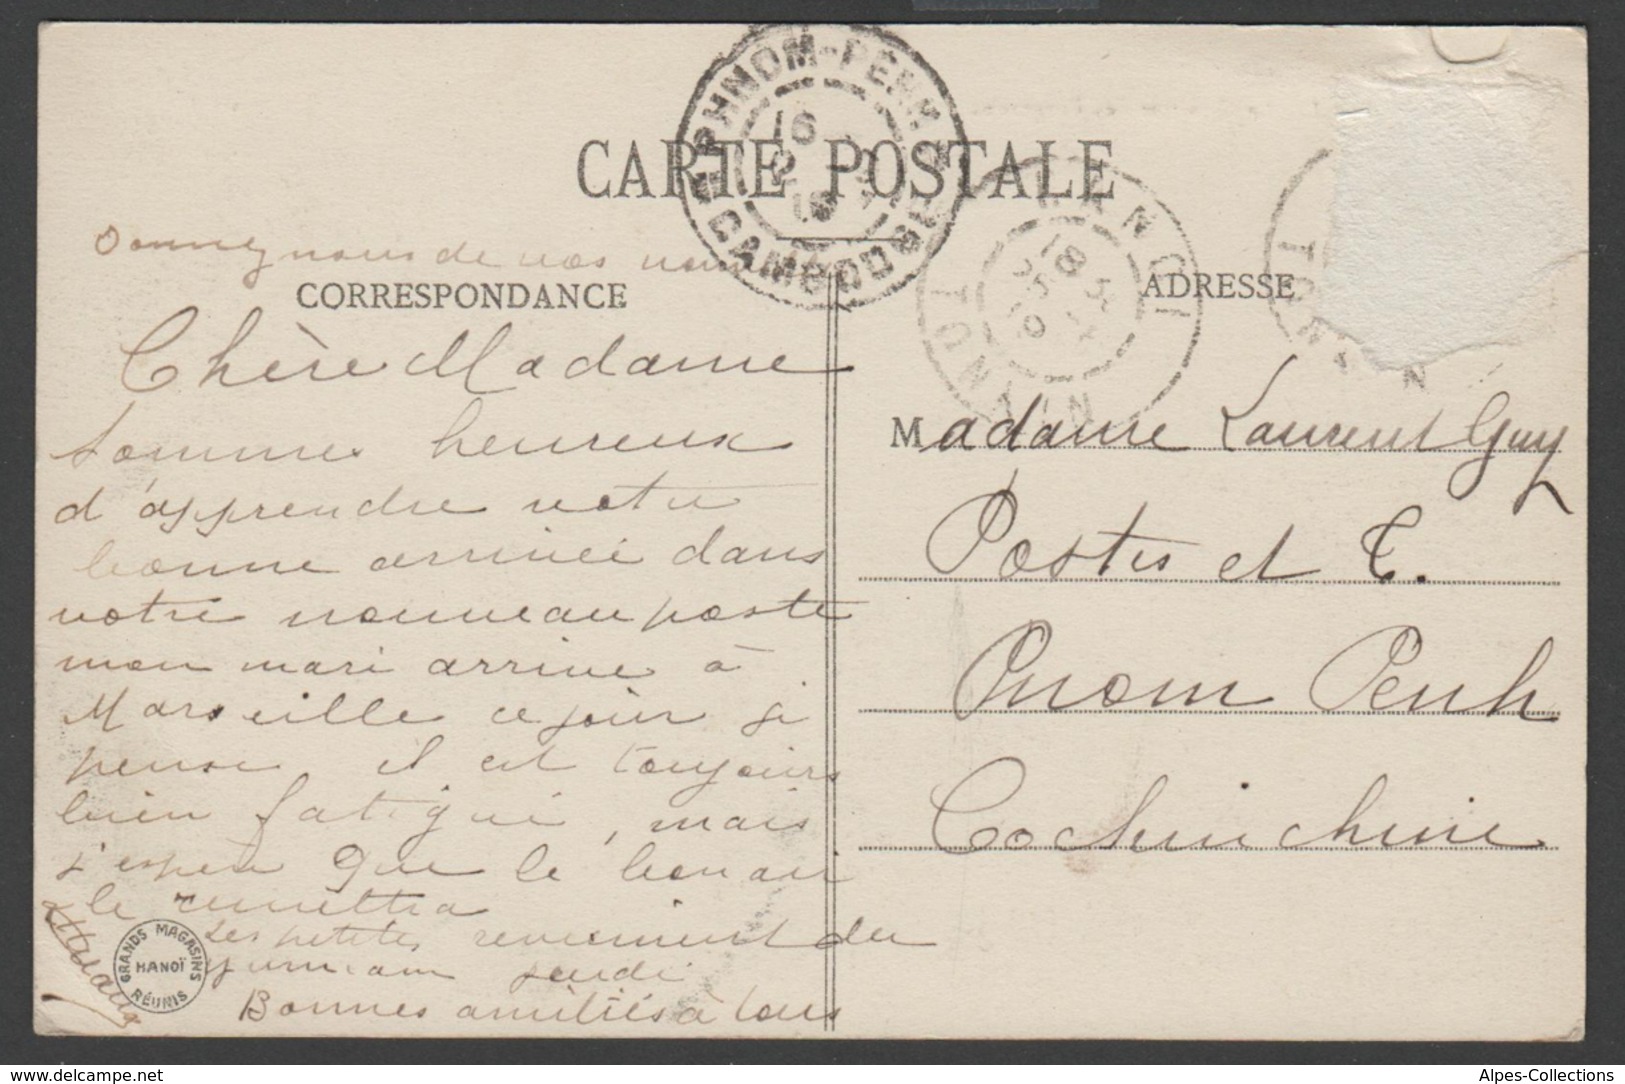 PHNOM-PENH
CAMBODGE
16
CARTE POSTALE
TONKIN
Donnez nous de vos nou
CORRESPONDANCE
ADRESSE
Chère Madame
sommes heureux
d'apprendre votre
bonne arrivée dans
votre nouveau poste
mon mari arrive à
Marseille ce jour je
pense il est toujours
bien fatigué, mais
j'espère que le bon air
le remettra
Les petites reviennent du
Yunnam jeudi
Bonnes amitiés à tous
GRANDS MAGASINS
HANOÏ
RÉUNIS
Madame Laurent Guy
Postes et T.
Pnom Penh
Cochinchine
www.delcampe.net
Alpes-Collections